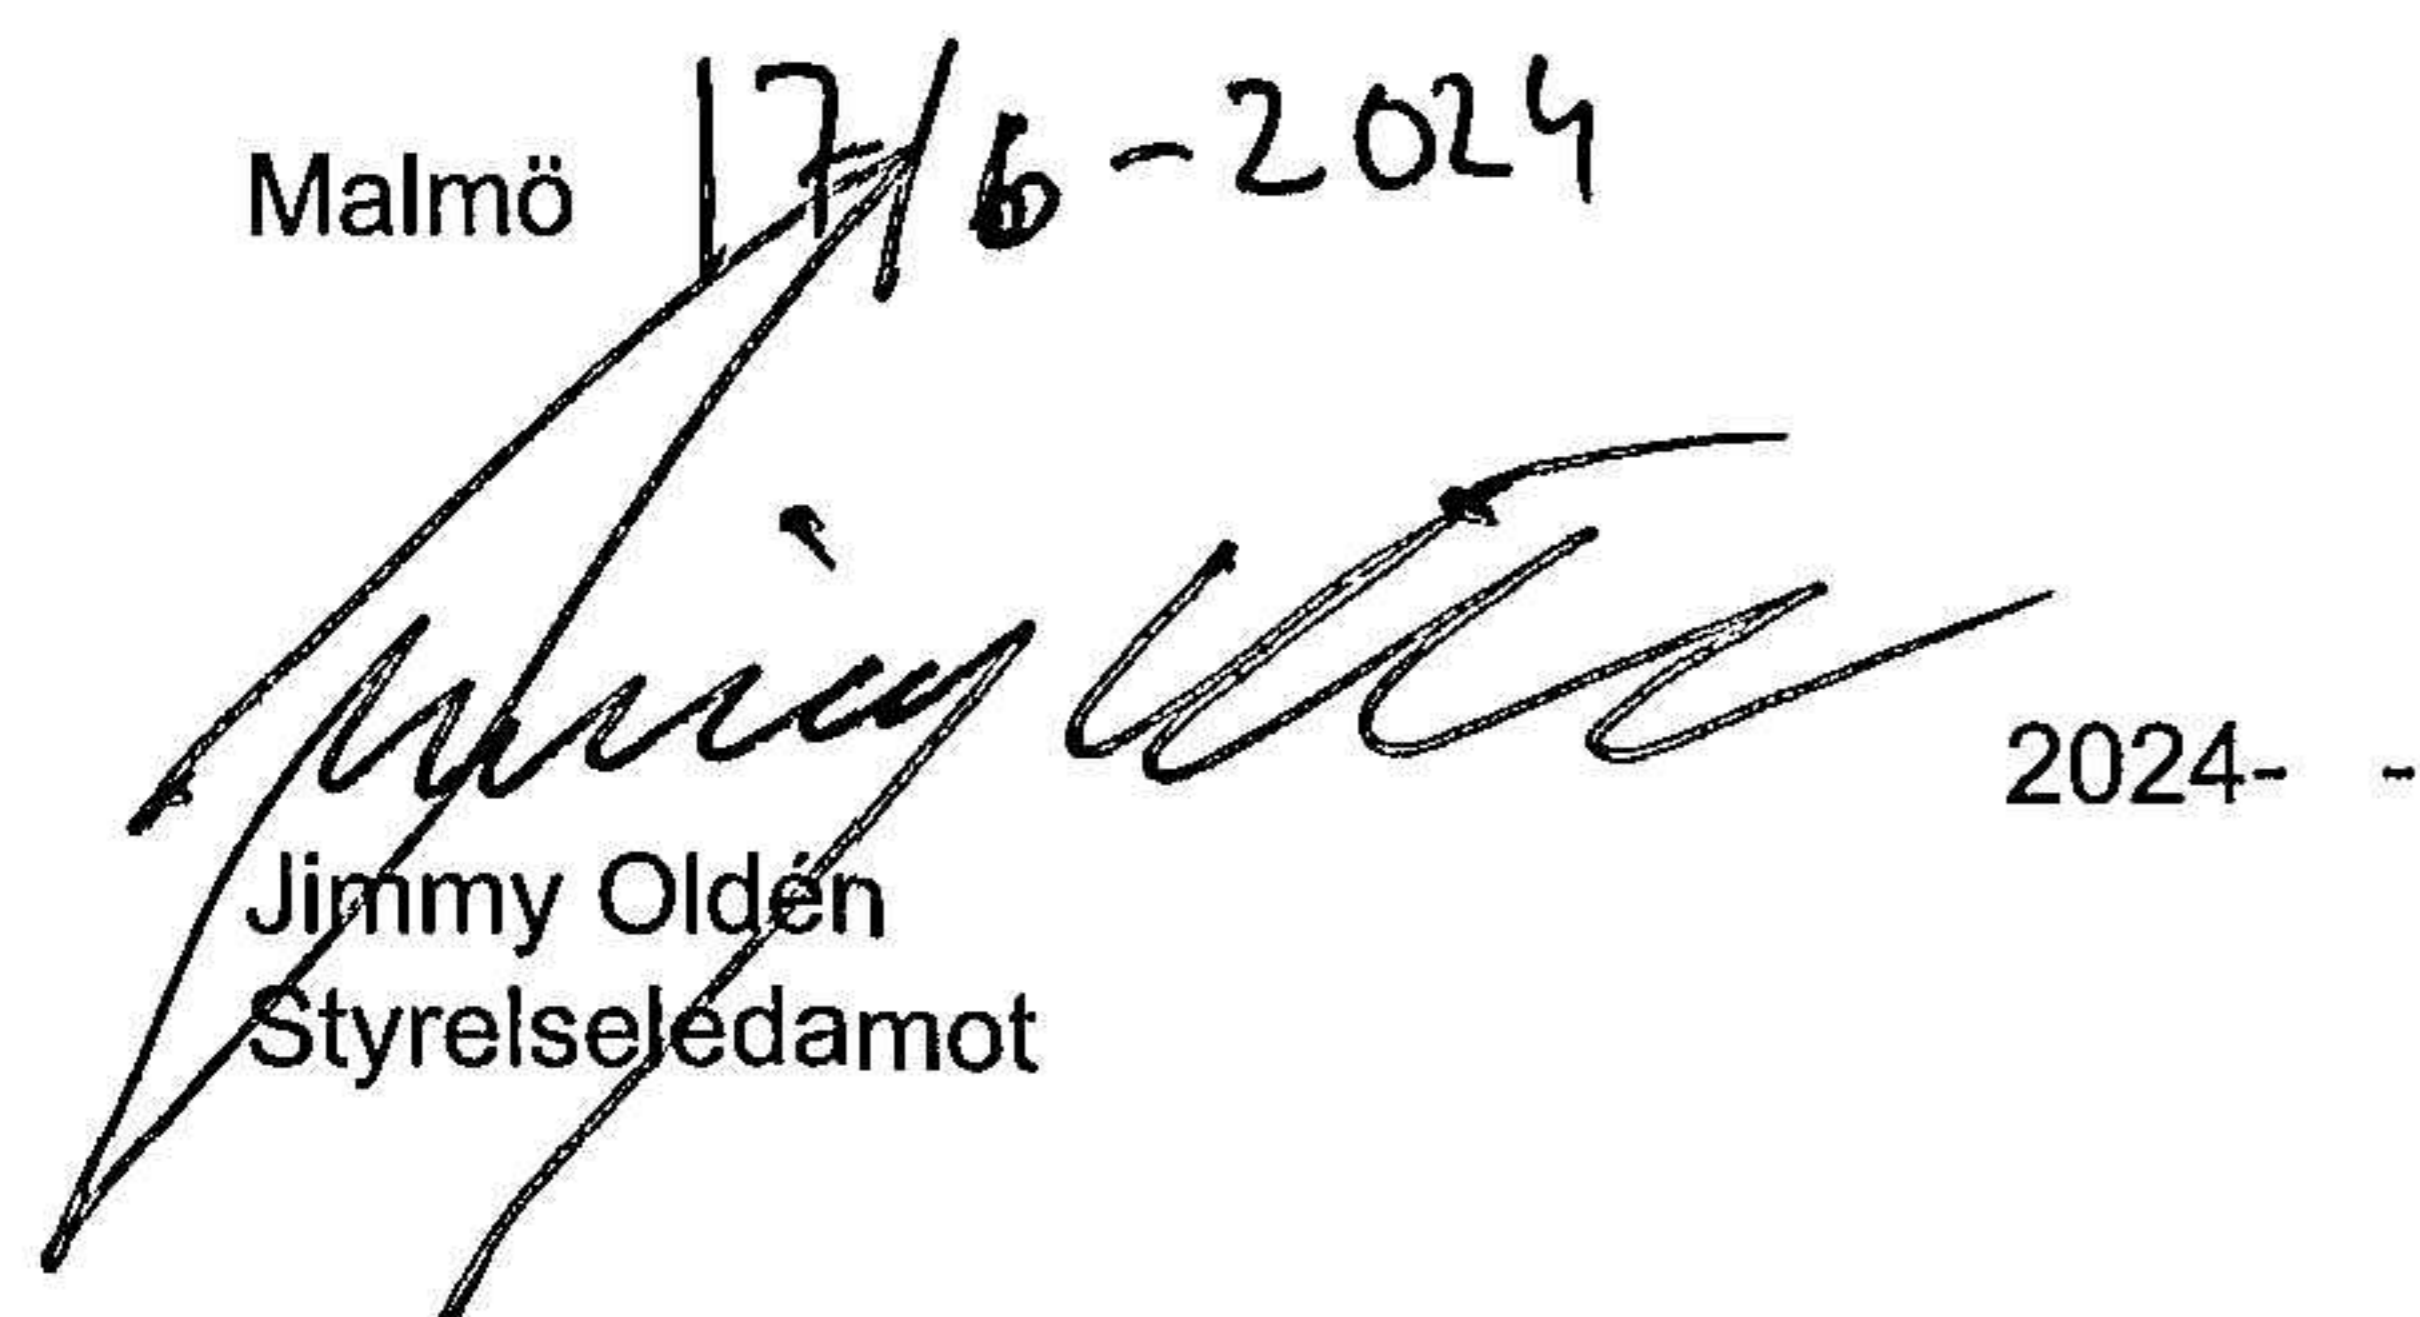 Malmö 17/6-2024
2024- -
Jimmy Oldén
Styrelseledamot